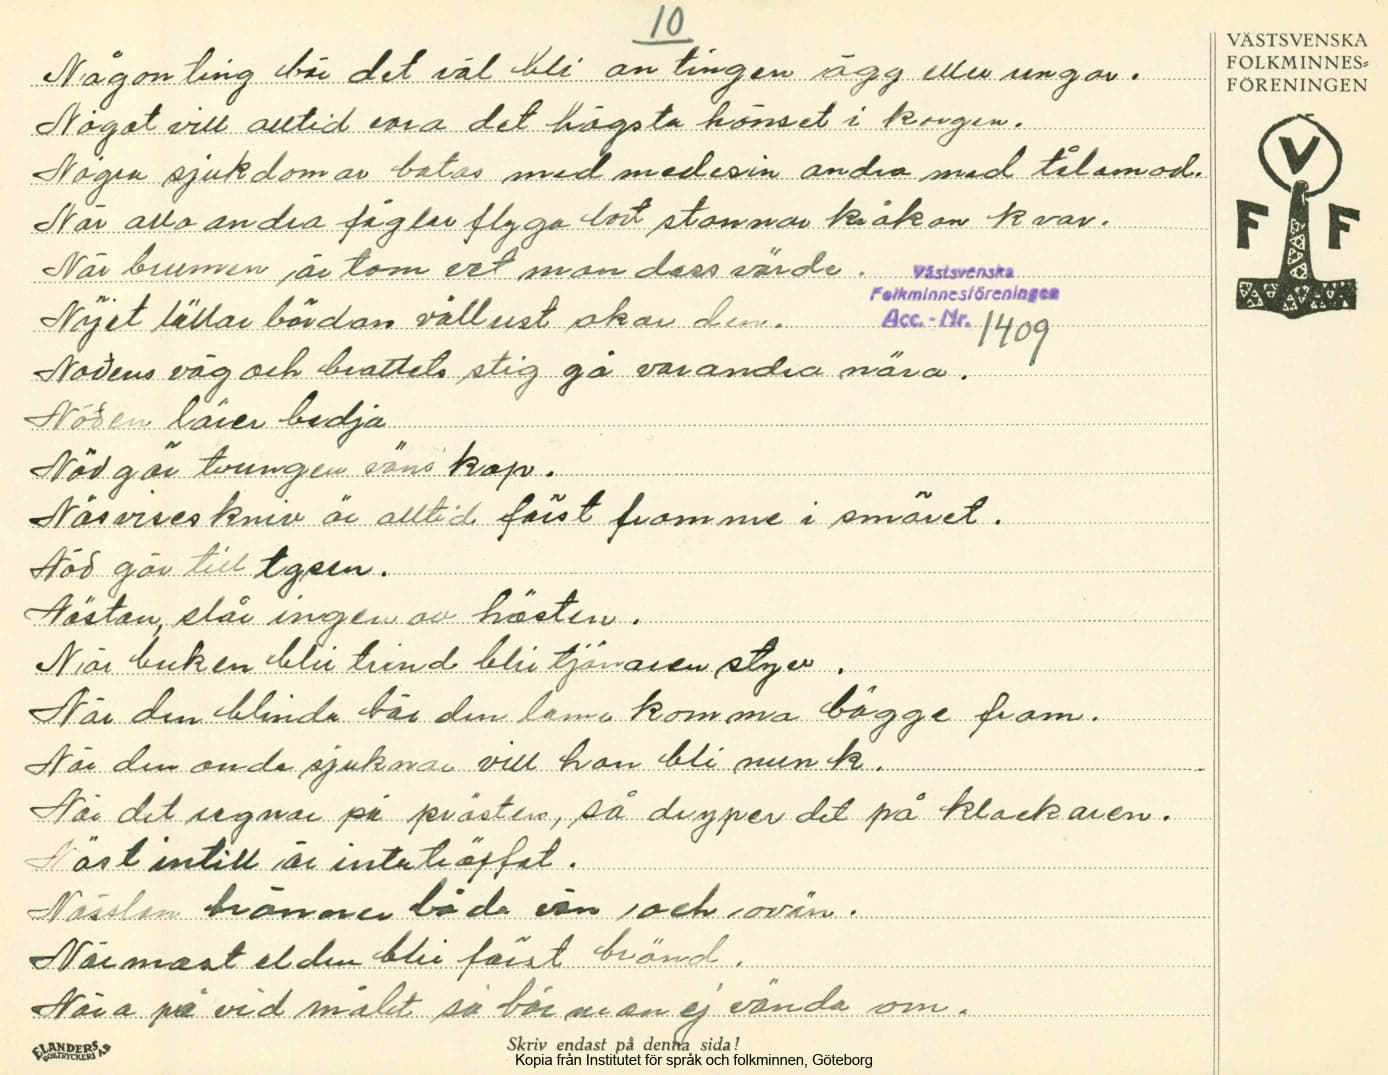 10
Någon ting bör det väl bli antingen ägg eller ungar.
Något vill alltid vara det högsta hönset i korgen.
Några sjukdomar botas med medesin andra med tålamod.
När alla andra fåglar flyga bort stannar kråkan kvar.
När brunnen är tom vet man dess värde.
Nöjet lättar bördan vällust ökar den.
Nödens väg och brottets stig gå varandra nära.
Nöden lärer bedja
Nöd gör tvungen vänskap.
Näsvises kniv är alltid först framme i smöret.
Nöd gör till tgsen.
Nästan, slår ingen av hästen.
När buken blir trind blir tjänaren styv.
När den blinde bär den lame komma bägge fram.
När den onde sjuknar vill han bli munk.
När det regnar på prästen, så dryper det på klockaren.
Näst intill är inte träffat.
Nässlan bränner både vän och ovän.
Närmast elden blir först bränd.
Nära på vid målet så bör man ej vända om.
VÄSTSVENSKA
FOLKMINNES=
FÖRENINGEN
V
F F
Västsvenska
Folkminnesföreningen
Acc.-Nr. 1409
ELANDERS
BOKTRYCKERI A.B
Skriv endast på denna sida!
Kopia från Institutet för språk och folkminnen, Göteborg